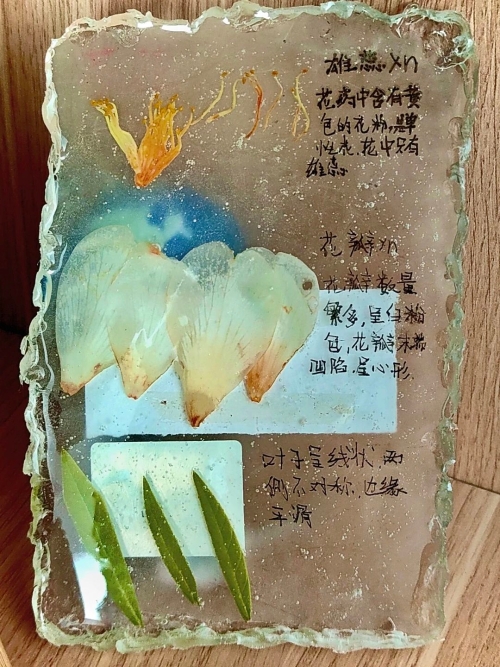 雄蕊×n
花药中含有黄
包的花粉,是单
性花,花中只有
雄蕊
花瓣×n
花瓣数量
繁多,呈白粉
包,花瓣末端
凹陷,呈心形.
叶子呈线状,两
侧不对称,边缘
平滑